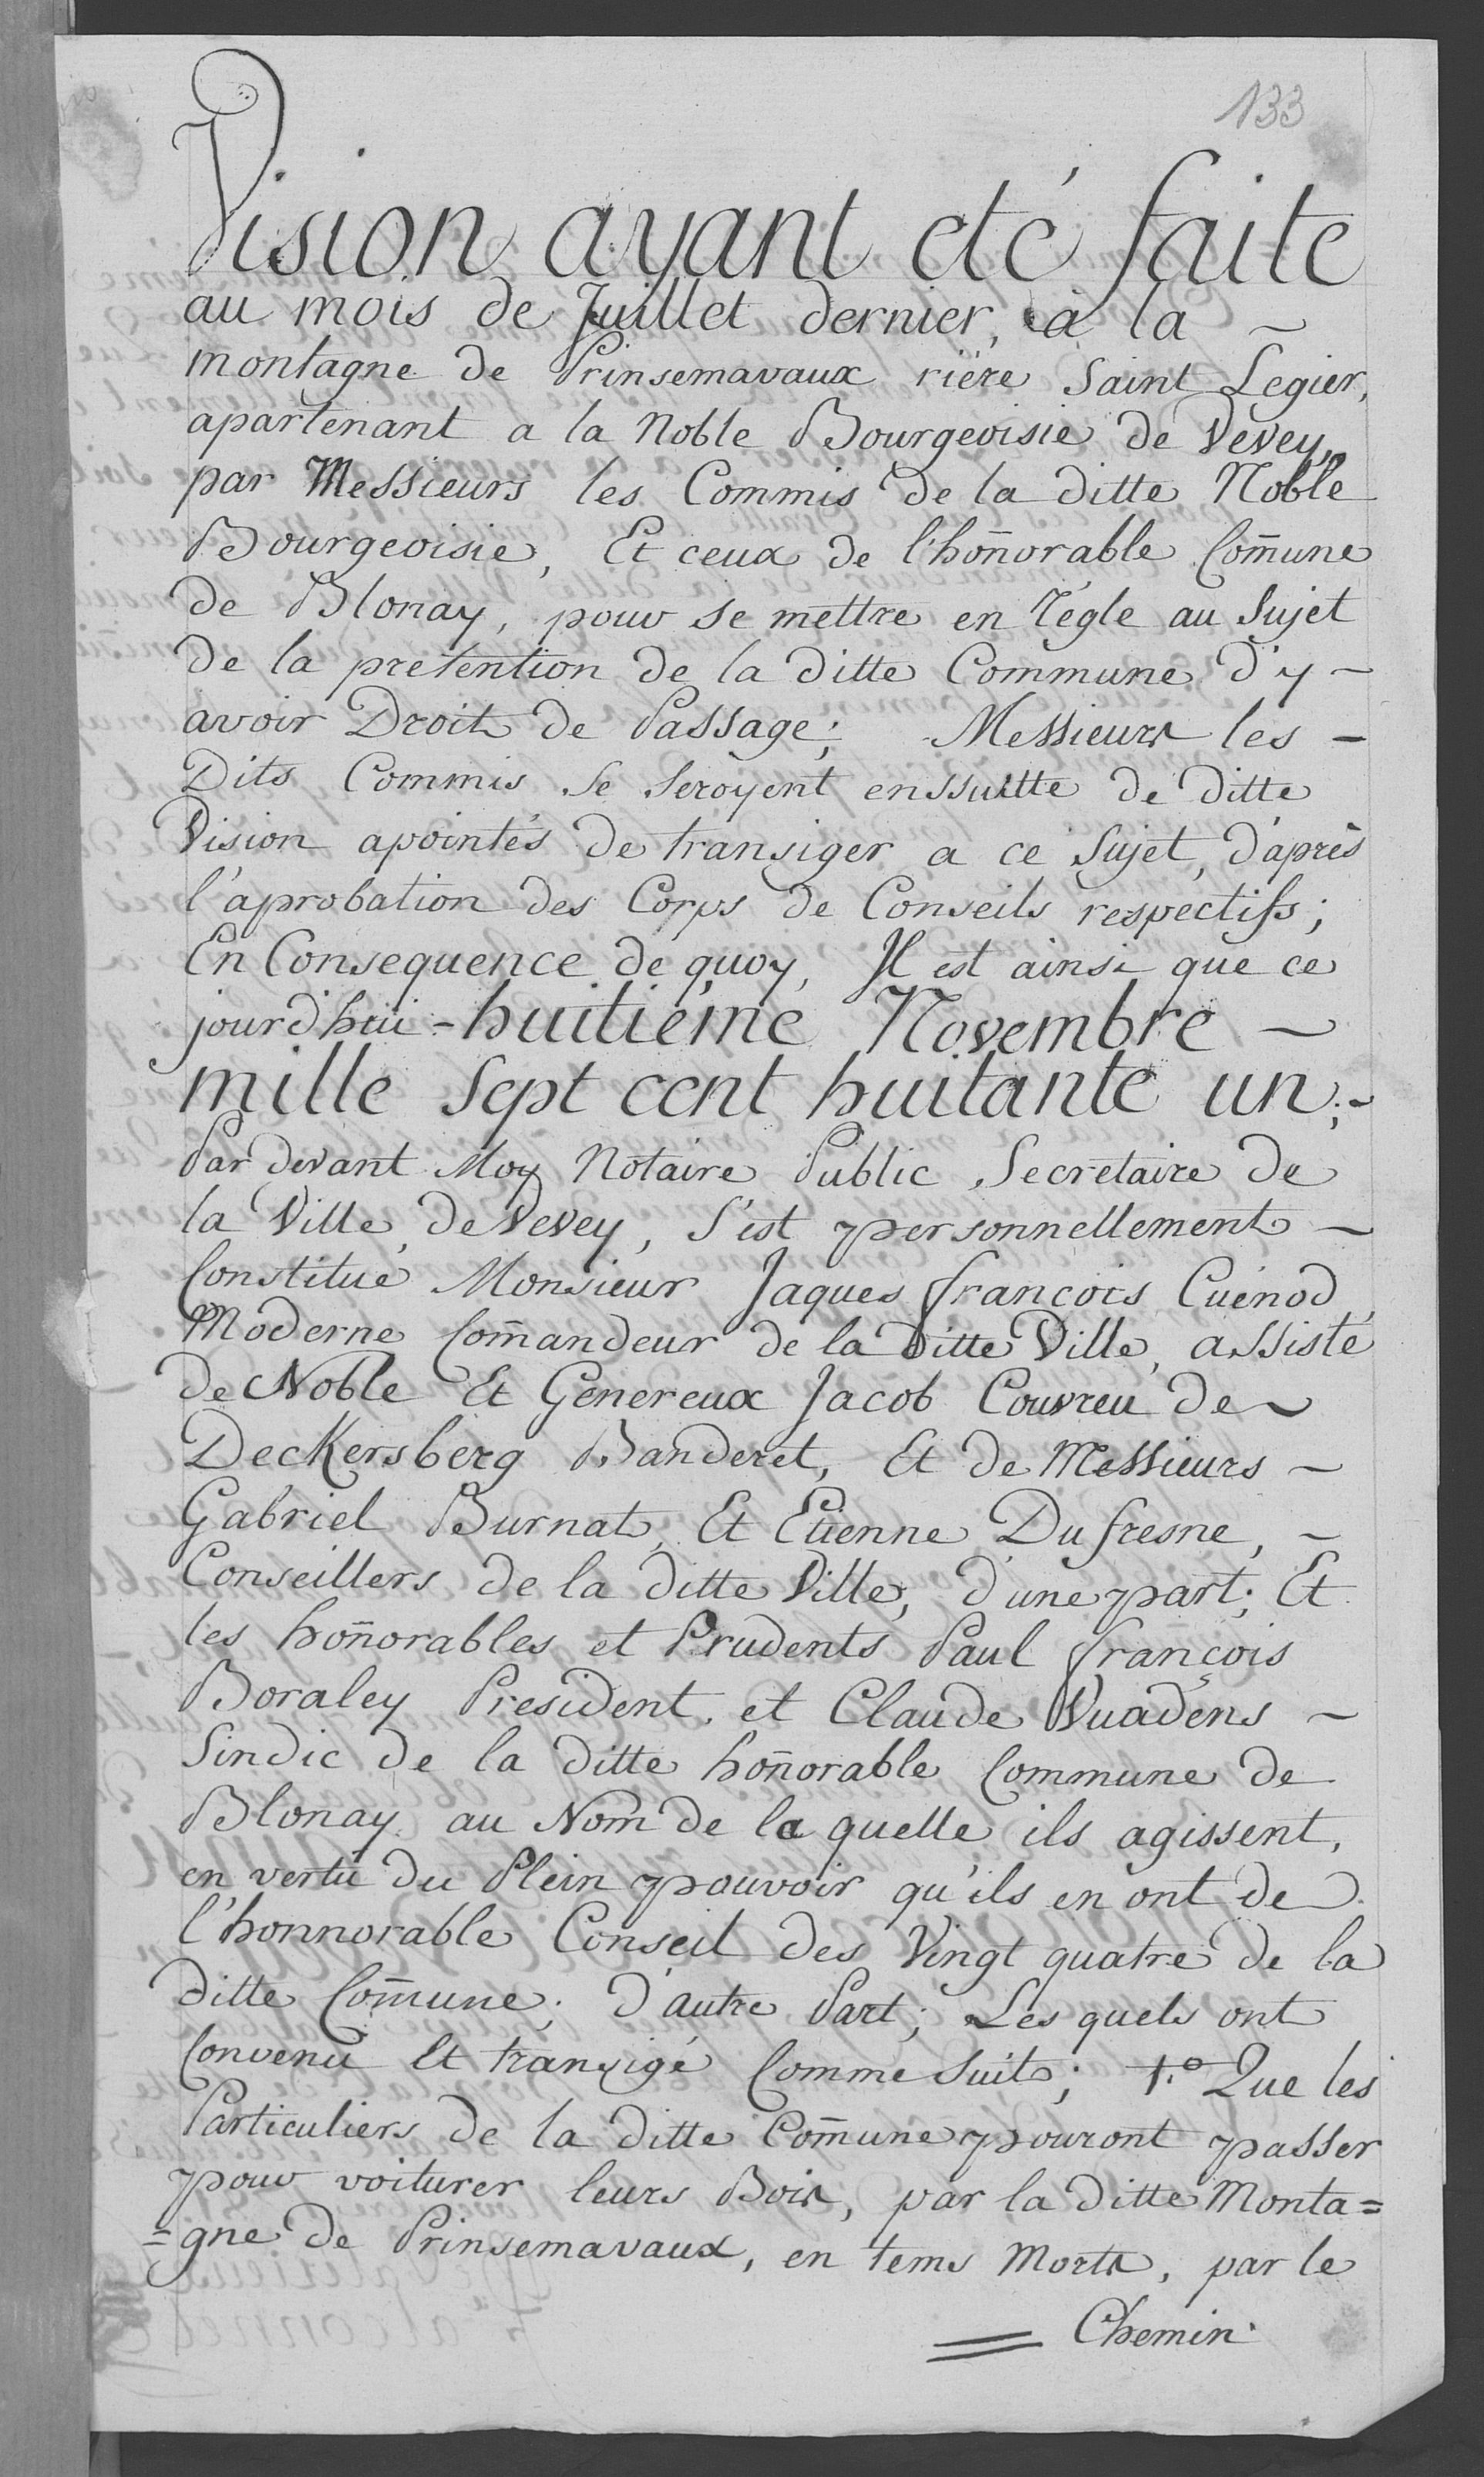 133
Vision ayant eté faite
au mois de Juillet dernier, à la ~
montagne de Prinsemavaux riére Saint Legier,
apartenant a la Noble Bourgeoisie de Vevey,
par Messieurs les Commis de la ditte Noble
Bourgeoisie, Et ceux de l'hon̄orable Com̄une
de Blonay, pour se mettre en régle au Sujet
de la pretention de la ditte Commune d'y -
avoir Droit de Passage; Messieurs les -
Dits Commis se seroyent enssuitte de ditte
Vision apointés de transiger a ce Sujet, d'après
l'aprobation des Corps de Conseils respectifs;
En Consequence de quoy, Il est ainsi que ce
jourd'hui - huitiéme Novembre ~
mille Sept cent huitante un;-
Par devant Moy Notaire Public Secretaire de
la Ville de Vevey, S'est personnellement ~
Constitué Monsieur Jaques françois Cuénod
Moderne Com̄andeur de la ditte Ville, assisté
de Noble Et Genereux Jacob Couvreu de ~
Deckersberg Banderet, Et de Messieurs ~
Gabriel Burnat, Et Etienne Dufresne, ~
Conseillers de la ditte Ville, d'une part; Et
les hon̄orables et Prudents Paul françois
Boraley President, et Claude Vuadens ~
Sindic de la ditte hon̄orable Commune de
Blonay au Nom de la quelle ils agissent,
en vertu du Plein pouvoir qu'ils en ont de
l'honnorable Conseil des Vingt quatre de la
ditte Com̄une; d'autre Part; Les quels ont
Convenu Et transigé Comme Suit; 1.° Que les
Particuliers de la ditte Com̄une pouront passer
pour voiturer leurs Bois, par la ditte Monta=
=gne de Prinsemavaux, en tems Morts, par le
= Chemin